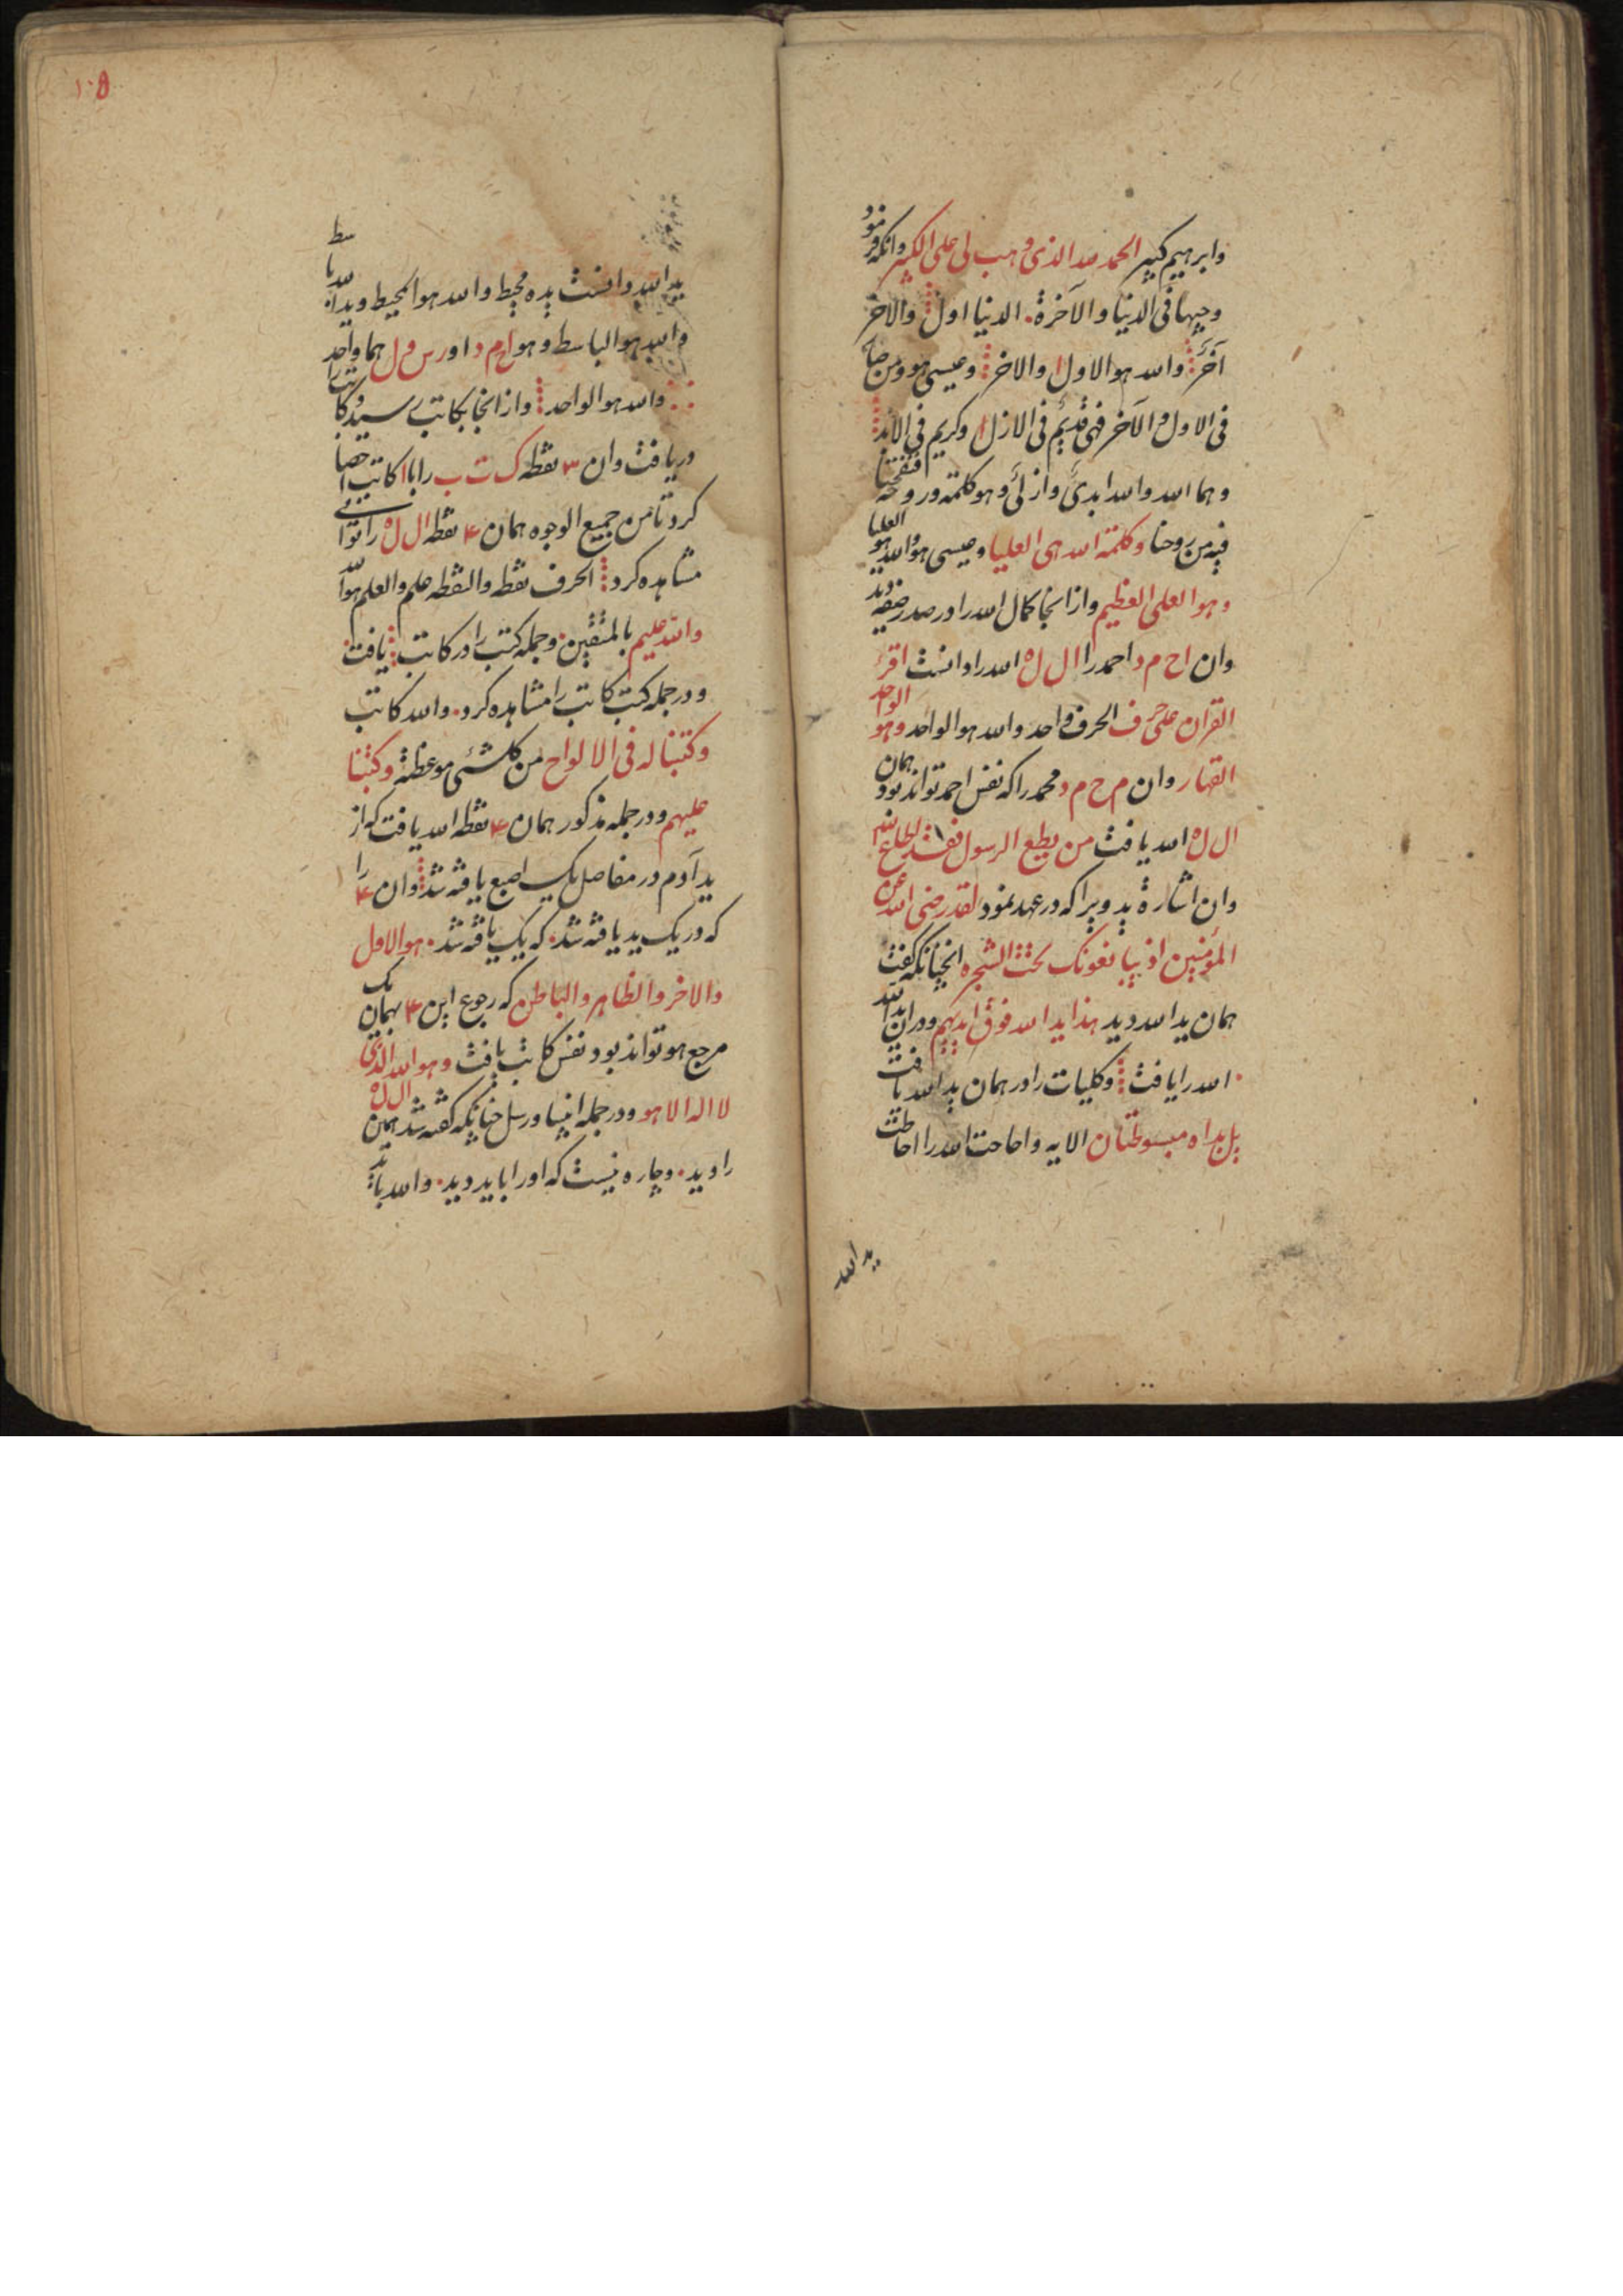 وابرهیم کبیر الحمد لله الذی وهب لی علی الکبر وانکه فرمود
وجیها فی الدنیا والآخرة الدنیا اول والاخر
آخر والله هو الاول والاخر وعیسی هو ومن
فی الاول والآخر فهی قدیم فی الازل وکریم فی الابد
وهما الله والله ابدی وازلی وهو کلمته وروحه فنفخنا
فیه من روحنا وکلمة الله هی العلیا وعیسی هو والله هو العلیا
وهو العلی العظیم وازانجا کمال الله را در صدر صفیه دید
وان اح م د احمد را ال ل ه الله را دانست اقرء
القران علی حرف الحرف واحد والله هو الواحد وهو الواحد
القهار وان م ح م د محمد را که نفس احمد تواند بود همان
ال ل ه الله یافت من یطع الرسول فقد اطاع الله
وان اشارة ید ویرا که در عهد نمود لقد رضی الله عن
المؤمنین اذ یبایعونک تحت الشجره انچنانکه گفت
همان ید الله دید هذا ید الله فوق ایدیهم ودران ید الله
الله را یافت وکلیات را در همان ید الله یافت
بل یداه مبسوطتان الایه واحاطت الله را احاطت
ید الله
۱۰۵
ید الله دانست یده محیط والله هو المحیط وید الله باسط
والله هو الباسط وهو ا ح م د اور س و ل هما واحد
والله هو الواحد وازانجا بکاتب رسید وکاتب را
دریافت وان ۳ نقطه ک ت ب را با ا کاتب احصا
کرد تا من جمیع الوجوه همان ۴ نقطه ال ل ه را توانستی
مشاهده کرد الحرف نقطه والنقطه علم والعلم هو الله
والله علیم بالمتقین وجمله کتب را در کاتب یافت
ودر جمله کتب کاتب را مشاهده کرد والله کاتب
وکتبنا له فی الالواح من کل شئی موعظة وکتبنا
علیهم ودر جمله مذکور همان ۴ نقطه الله یافت که از
ید آدم در مفاصل یک اصبع یافته شد وان ۴ را
که در یک ید یافته شد که یک یافته شد هو الاول
والاخر والظاهر والباطن که رجوع این ۴ بهمان یک
مرجع هو تواند بود نفس کاتب یافت وهو الله الذی
لا اله الا هو ودر جمله انبیا ورسل چنانکه گفته شد همین ال ل ه
را دید وچاره نیست که اورا باید دید والله